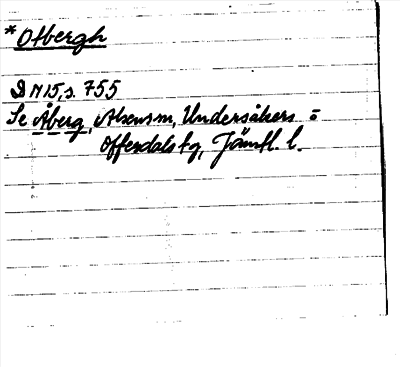 * Otbergh
DN 15, s. 755
Se Åberg, Alsens sn, Undersåkers =
Offerdals tg, Jämtl. l.